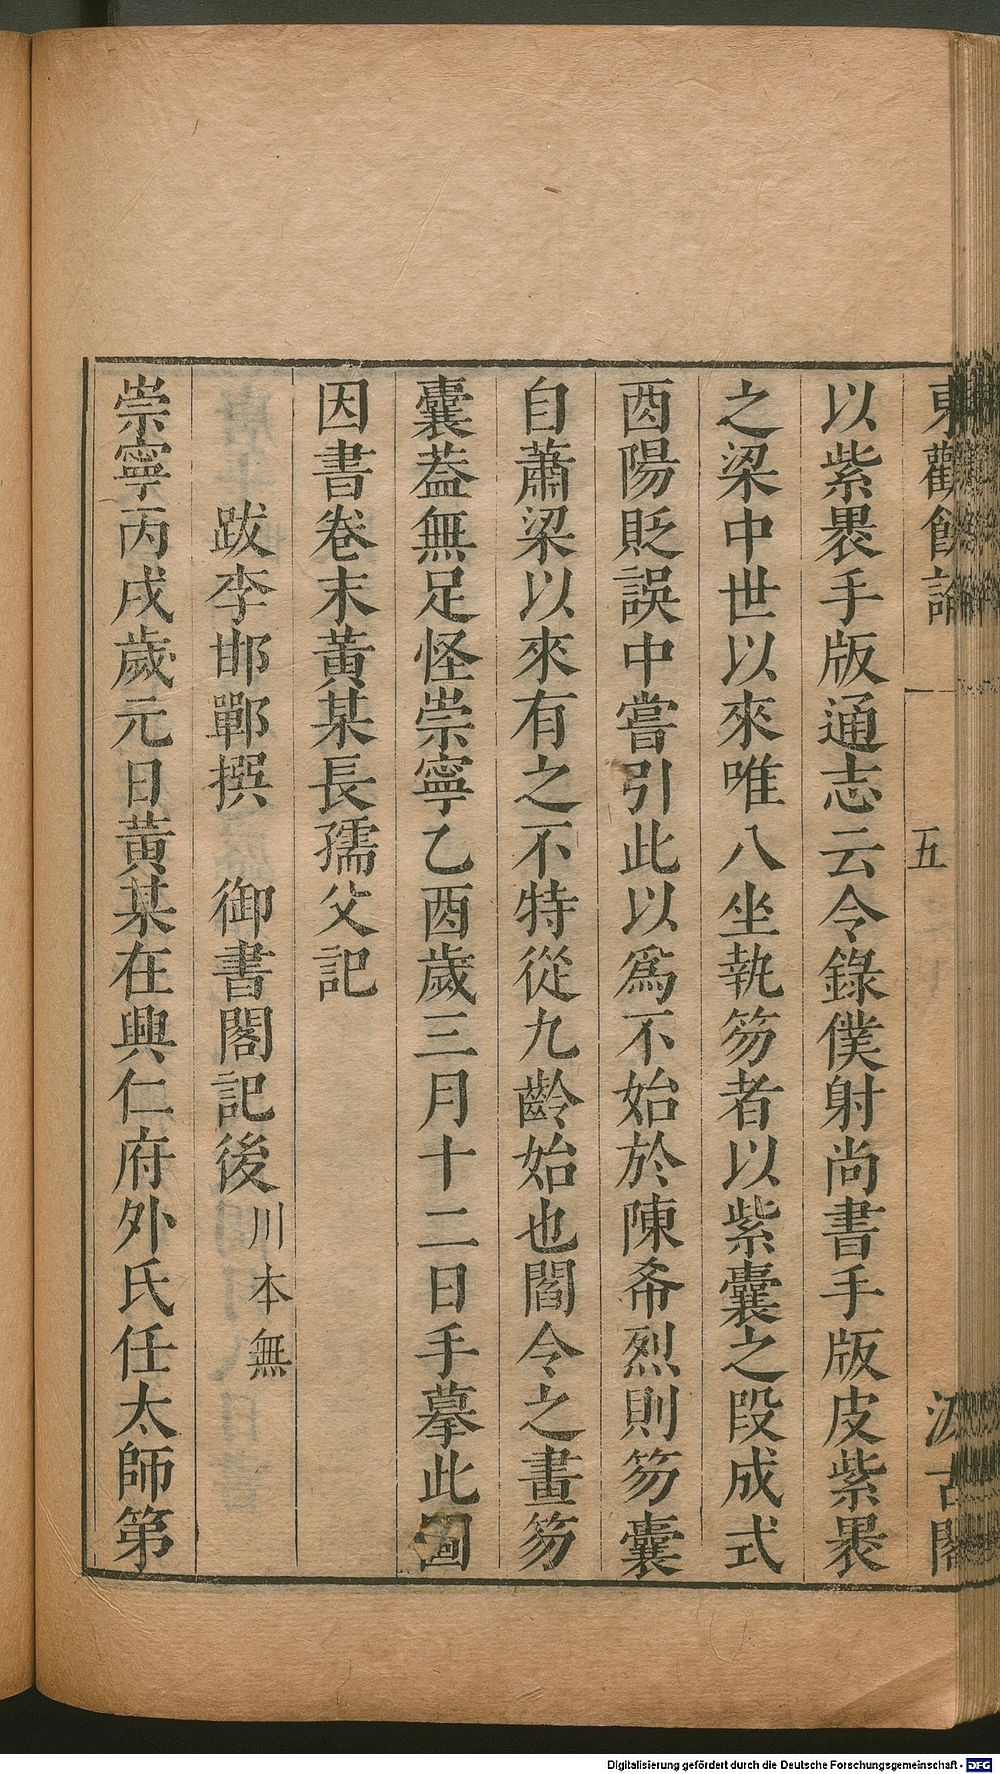 東觀餘論
五
汲古閣
以紫褁手版通志云令錄僕射尚書手版皮紫褁
之梁中世以來唯八坐執笏者以紫囊之段成式
酉陽貶誤中嘗引此以爲不始於陳希烈則笏囊
自蕭梁以來有之不特從九齡始也閻令之畫笏
囊葢無足怪崇寧乙酉歲三月十二日手摹此圖
因書卷末黃某長孺父記
跋李邯鄲撰 御書閣記後川本無
崇寧丙戌歲元日黃某在興仁府外氏任太師第
Digitalisierung gefördert durch die Deutsche Forschungsgemeinschaft - DFG